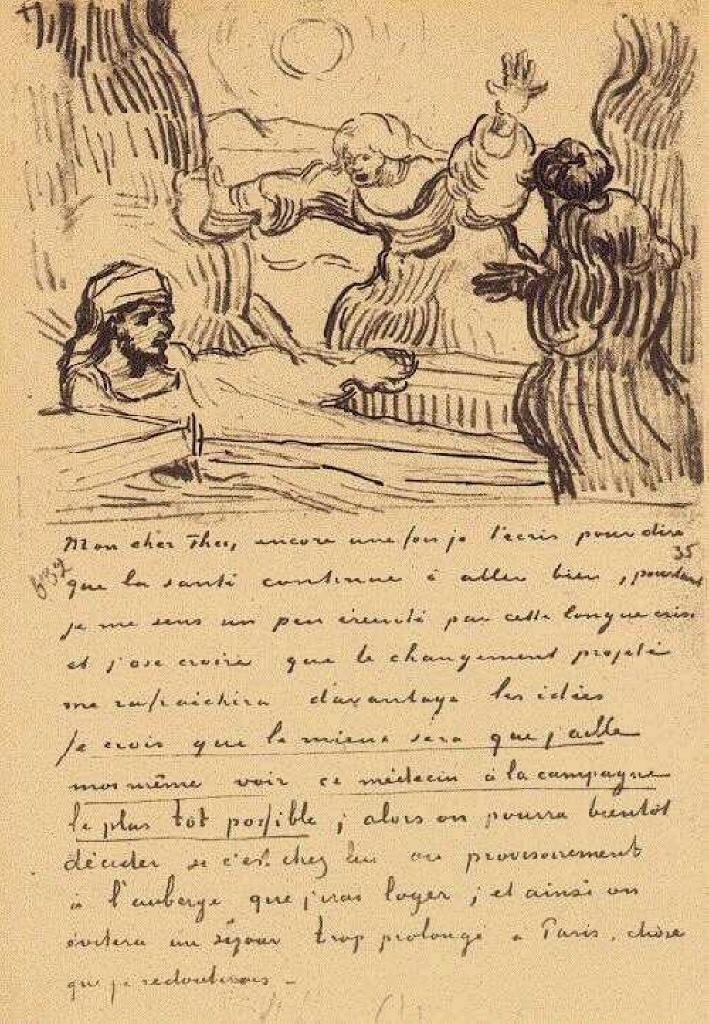 Mon cher Theo, encore une fois je t'écris pour dire
que la santé continue à aller bien, pourtant
je me sens un peu éreinté par cette longue crise
et j'ose croire que le changement projeté
me rafraichira davantage les idées
Je crois que le mieux sera que j'aille
moi même voir ce médecin à la campagne
le plus tôt possible ; alors on pourra bientot
décider si c'est chez lui ou provisoirement
à l'auberge que j'irai loger ; et ainsi on
évitera un séjour trop prolongé à Paris, chose
que je redouterais –
35
632